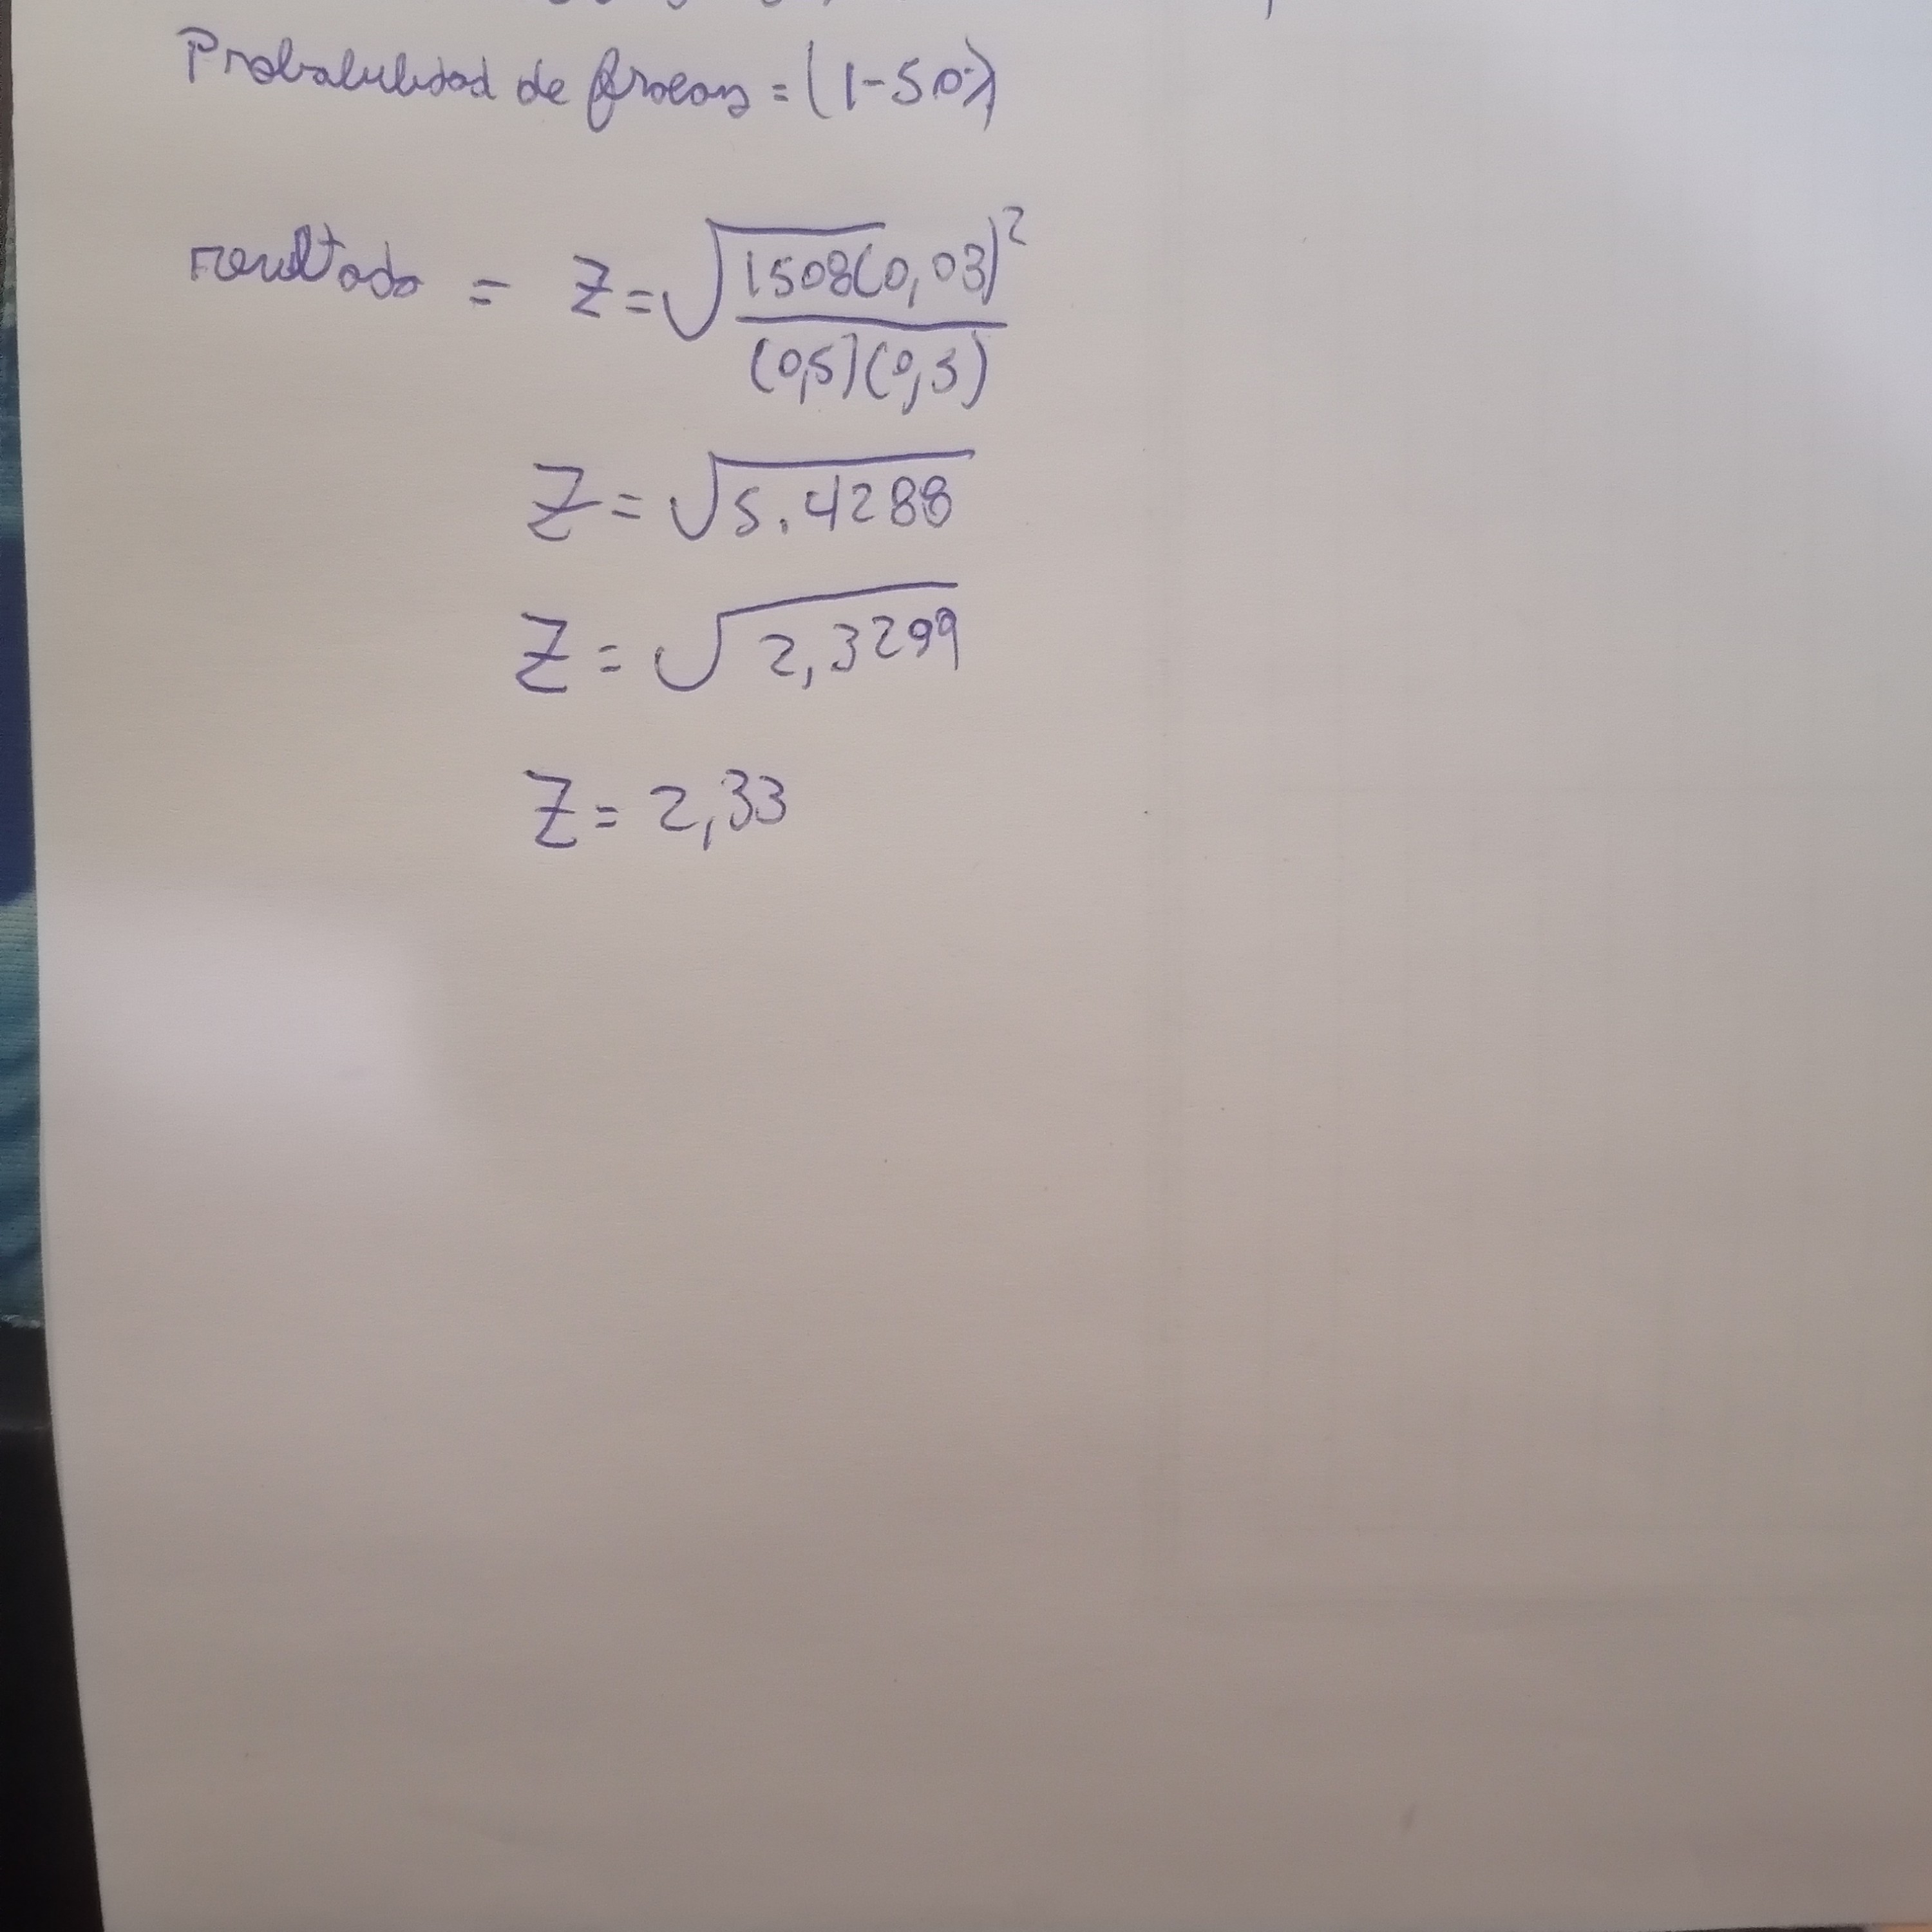 Probabilidad de fracaso = (1-50%)
resultado = Z = √1508(0,03)²
(0,5)(0,5)
Z = √5.4288
Z = √2,3299
Z = 2,33